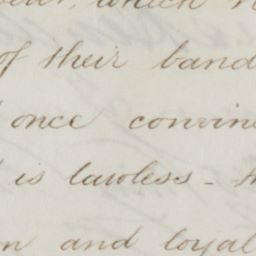 which
of their band
once convin
is lawless - 
and loyal